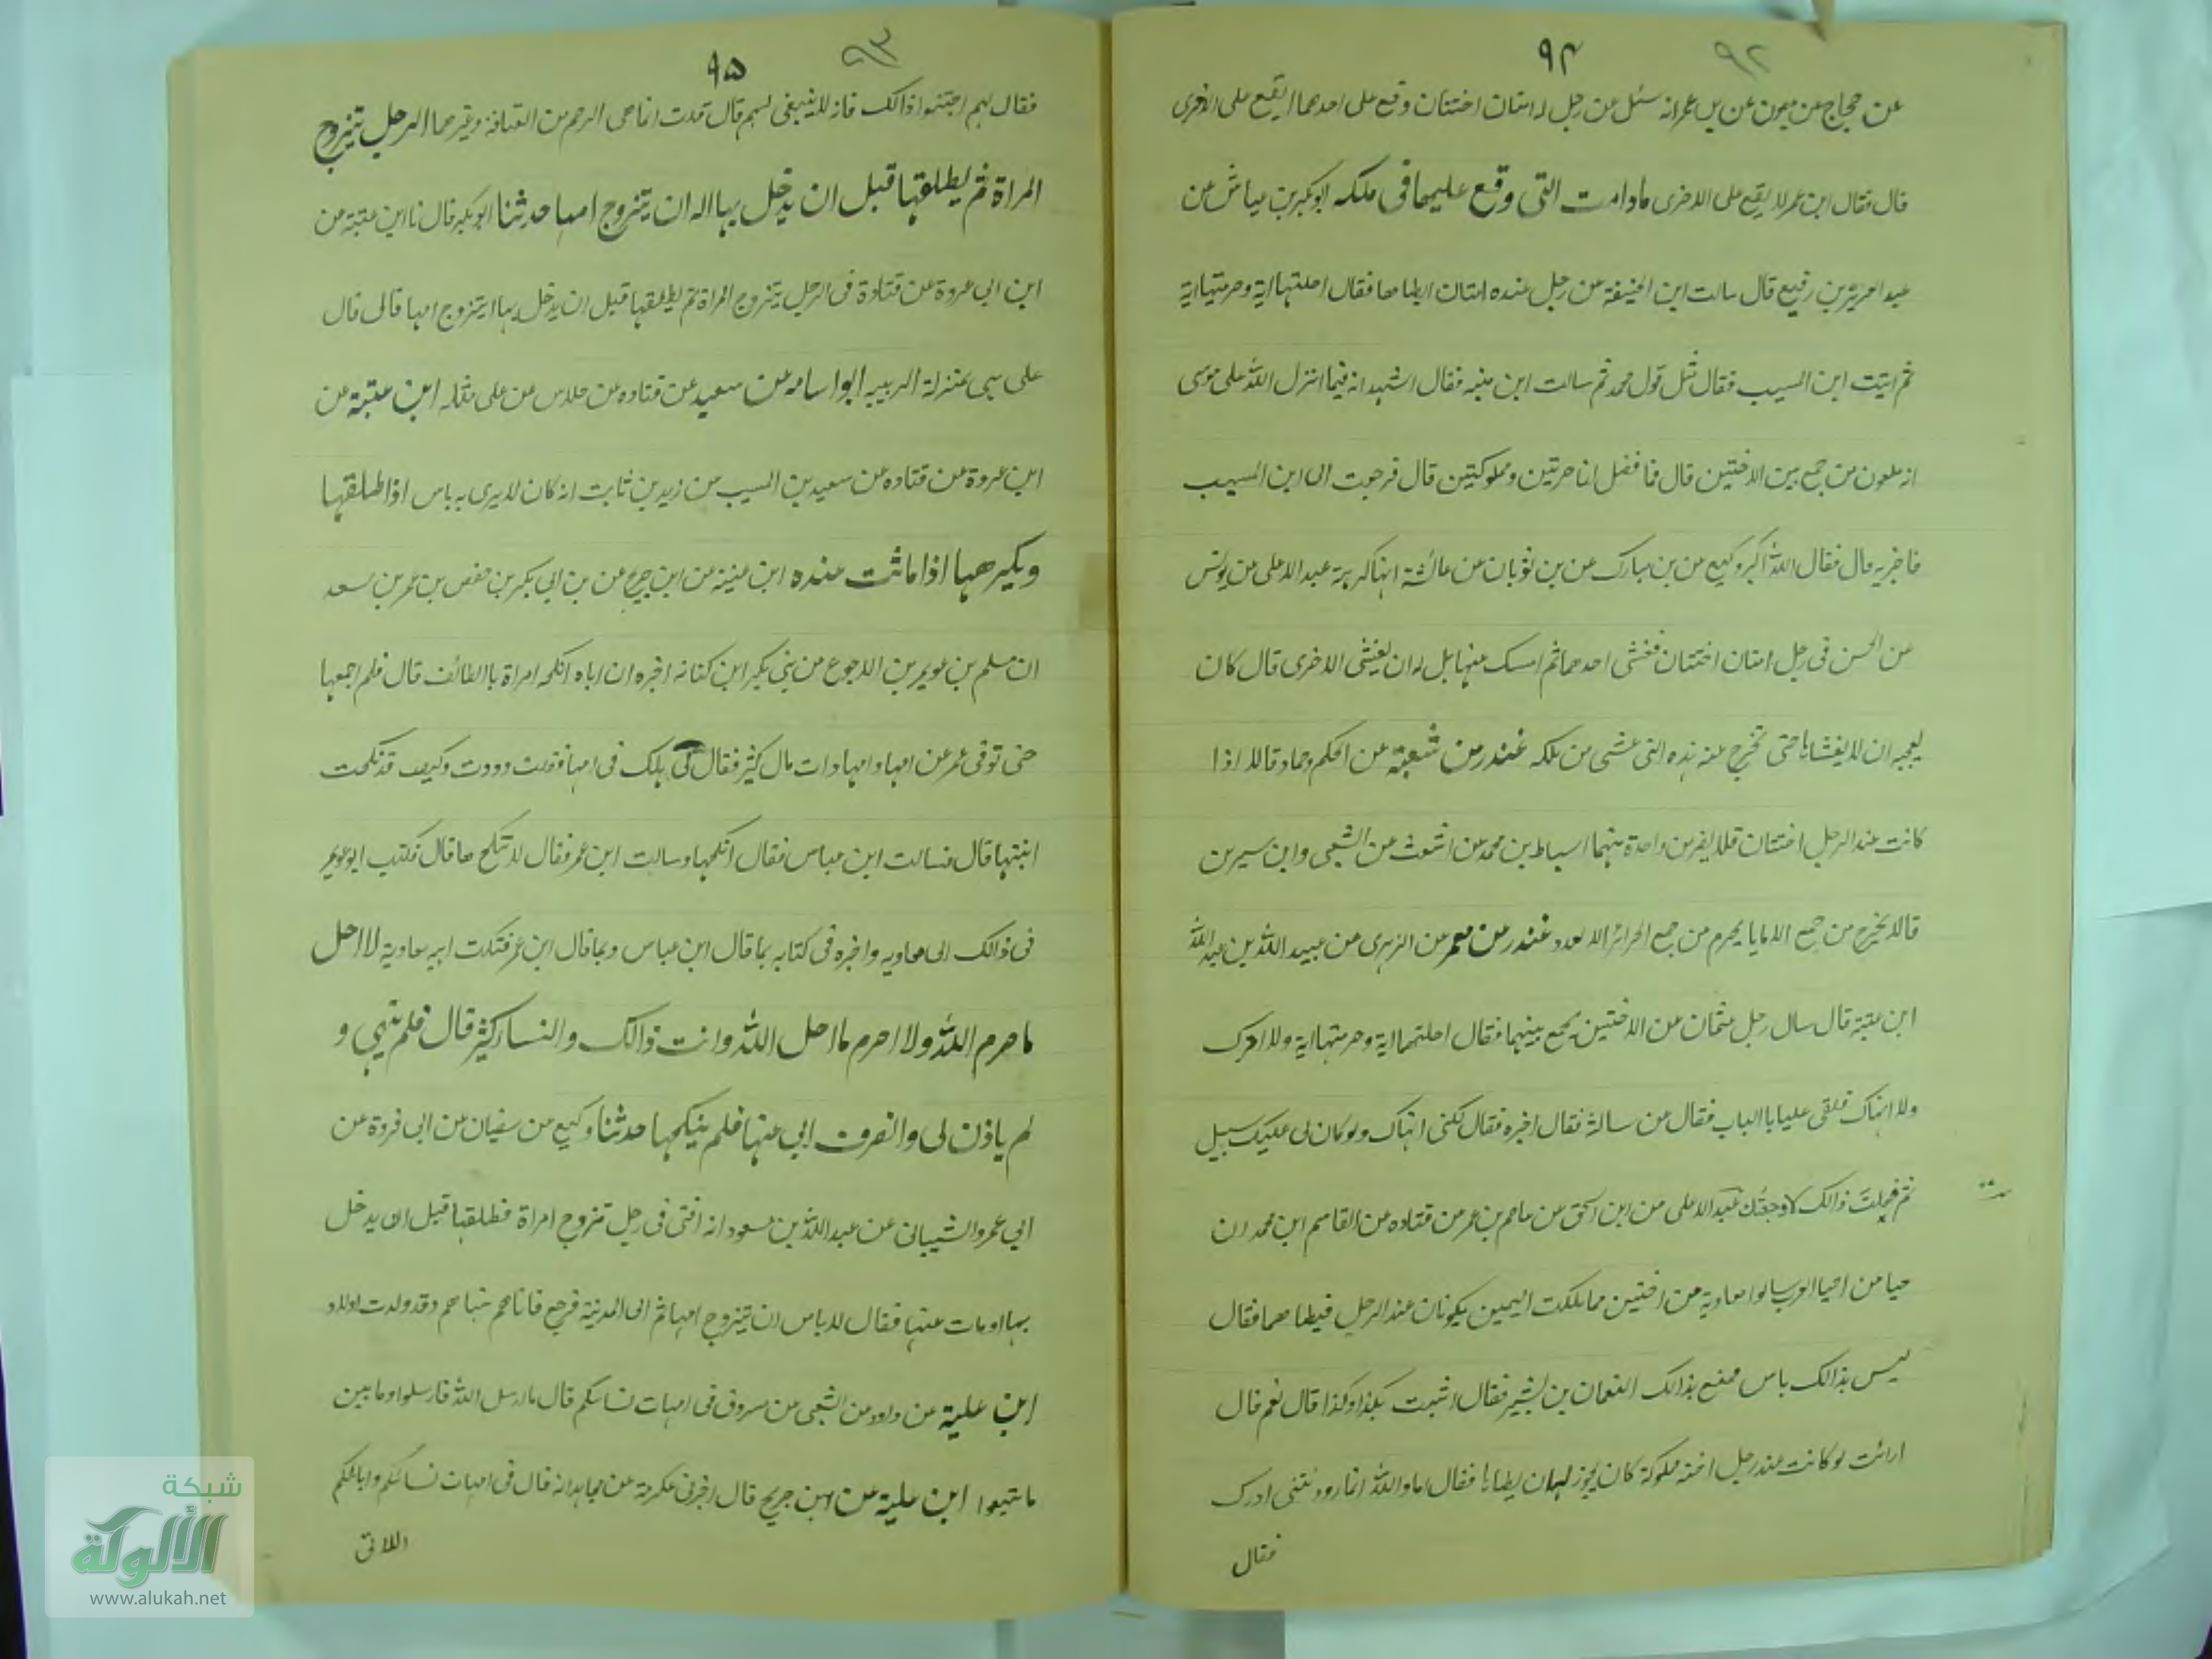 ٩٢
٩٤
عن حجاج عن ميمون عن بن عمر انه سئل عن رجل له امتان اختتان وقع على احدهما ايقع على الاخرى
قال فقال ابن عمر لا يقع على الاخرى مادامت التى وقع عليها فى ملكه ابو بكر بن عياش عن
عبد العزيز بن رفيع قال سالت ابن الحنيفة عن رجل عنده امتان ايطاهما فقال احلتهما اية وحرمتهما اية
ثم اتيت ابن المسيب فقال مثل قول محمد ثم سالت ابن منبه فقال اشهد انه فيما انزل الله على موسى
انه ملعون من جمع بين الاختين قال فما فصل لنا حرتين ومملوكتين قال فرجعت الى ابن المسيب
فاخبرته قال فقال الله اكبر وكيع عن بن مبارك عن بن ثوبان عن عائشة انها كرهته عبد الاعلى عن يونس
عن الحسن فى رجل امتان اختتان فغشى احدهما ثم امسك عنها هل له ان يغشى الاخرى قال كان
يعجبه ان لا يغشاها حتى تخرج عنه هذه التى غشى من ملكه غندر من شعبة عن الحكم وحماد قالا اذا
كانت عند الرجل اختتان فلا يقربن واحدة منهما اسباط بن محمد عن اشعث عن الشعبى وابن سيرين
قالا يحرم من جمع الاماء ما يحرم من جمع الحرائر الا لعدد غندر من معمر عن الزهرى عن عبيد الله بن عبد الله
ابن عتبة قال سال رجل عثمان عن الاختين يجمع بينهما فقال احلتهما اية وحرمتهما اية ولا امرك
ولا انهاك فلقى عليا بالباب فقال عن سالته فقال اخبره فقال لكنى انهاك ولو كان لى عليك سبيل
ثم فعلت ذالك لاوجعتك عبد الاعلى من ابن اسحق عن عاصم بن عمر من قتاده عن القاسم ابن محمد ان
حيا من احيا العرب سالوا معاوية عن اختين مما ملكت اليمين يكونان عند الرجل فيطاهما فقال
ليس بذالك باس فسمع بذالك النعمان بن بشير فقال افتيت بكذا وكذا قال نعم قال
ارائت لو كانت عند رجل اخته مملوكة كان يجوز له ان يطاها فقال اما والله انما رددتنى ادرك
فقال
٩٣
٩٥
فقال لهم اجتنبوا ذالك فانه لا ينبغى لهم قال قدت انما هى الرحم من العتاقة وغيرهما الرجل يتزوج
المراة ثم يطلقها قبل ان يدخل بها اله ان يتزوج امها حدثنا ابو بكر قال نا ابن علية عن
ابن ابى عروة عن قتادة فى الرجل يتزوج المراة ثم يطلقها قبل ان يدخل بها ايتزوج امها قال قال
على هى بمنزلة الربيبه ابو اسامه عن سعيد عن قتاده عن خلاس عن على مثله ابن علية عن
ابن عروة عن قتاده عن سعيد بن المسيب عن زيد بن ثابت انه كان لا يرى به باس اذا طلقها
ويكرهها اذا ماتت عنده ابن علية عن ابن جريج عن بن ابى بكر بن حفص بن عمر بن سعد
ان مسلم بن عويمر بن الاجوع من بنى بكر ابن كنانه اخبره ان اباه انكحه امراة بالطائف قال فلم اجمعها
حتى توفى عمر عن امها وامها ذات مال كثير فقال لى هل لك فى امها فقلت وددت وكيف قد نكحت
ابنتها قال فسالت ابن عباس فقال انكحها وسالت ابن عمر فقال لا تنكحها قال فكتب ابو عويمر
فى ذالك الى معاويه واخبره فى كتابه بما قال ابن عباس وبما قال ابن عمر فكتب اليه معاوية لا احل
ما حرم الله ولا احرم ما احل الله وانت ذالك والنساء كثير قال فلم ينهى و
لم ياذن لى وانصرف ابى عنها فلم ينكحها حدثنا وكيع عن سفيان عن ابى فروة عن
ابى عمرو الشيبانى عن عبد الله بن مسعود انه افتى فى رجل تزوج امراة فطلقها قبل ان يدخل
بها او مات عنها فقال لا باس ان يتزوج امها ثم اتى المدنية فرجع فاتاهم فنهاهم وقد ولدت اولاد
ابن علية عن داود عن الشعبى عن مسروق فى امهات نسائكم قال ما ارسل الله فارسلوا وما بين
ماتبعوا ابن علية عن ابن جريج قال اخبرنى عكرمة عن مجاهد انه قال فى امهات نسائكم وربائبكم
اللاتى
شبكة
الألوكة
www.alukah.net